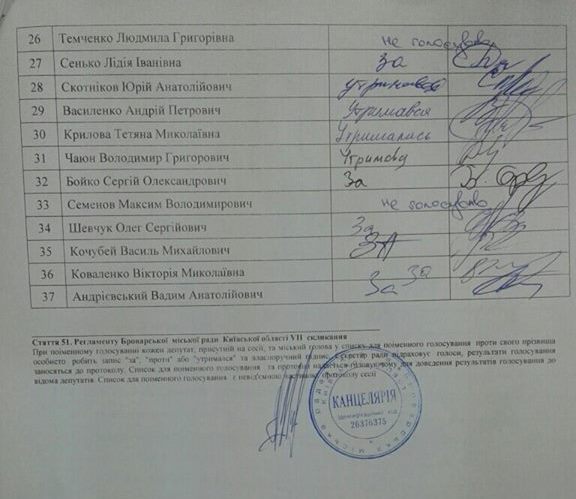 26 Темченко Людмила Григорівна не голосувала
27 Сенько Лідія Іванівна за
28 Скотніков Юрій Анатолійович утримався
29 Василенко Андрій Петрович Утримався
30 Крилова Тетяна Миколаївна Утрималась
31 Чаюн Володимир Григорович
32 Бойко Сергій Олександрович За
33 Семенов Максим Володимирович не голосував
34 Шевчук Олег Сергійович За
35 Кочубей Василь Михайлович ЗА
36 Коваленко Вікторія Миколаївна За
37 Андрієвський Вадим Анатолійович За
Стаття 51. Регламенту Броварської міської ради Київської області VII скликання
При поіменному голосуванні кожен депутат, присутній на сесії, та міський голова у списку для поіменного голосування проти свого прізвища
особисто робить запис "за", "проти" або "утримався" та власноручний підпис. Секретар ради підраховує голоси, результати голосування
заносяться до протоколу. Список для поіменного голосування та протокол надається головуючому для доведення результатів голосування до
відома депутатів. Список для поіменного голосування є невід'ємною частиною протоколу сесії
КАНЦЕЛЯРІЯ
Ідентифікаційний код
26376375